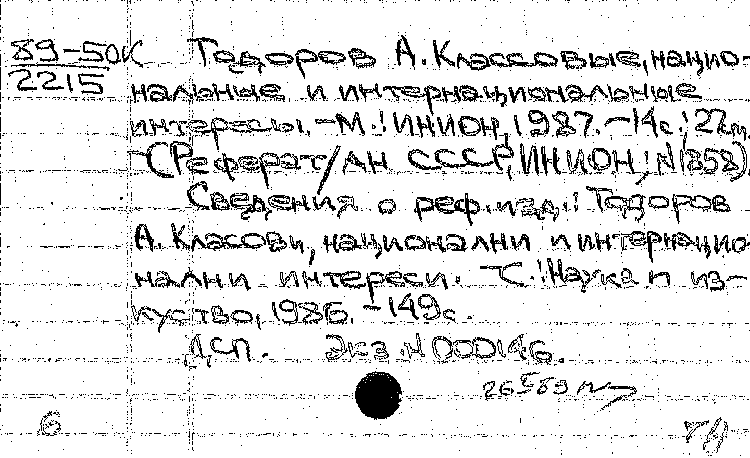 89-50К Тодоров А. Классовые, нацио-
2215 нальные и интернациональные
интересы. -М.: ИНИОН, 1987. -14с.; 22см.
-(Реферат/АН СССР, ИНИОН; N1858).
Сведения о реф. изд.: Тодоров
А. Класови, национални и интернацио-
нални интереси. -С.: Наука и из-
куство, 1986. -149с.
ДСП. Экз. N 000146.
26569
6